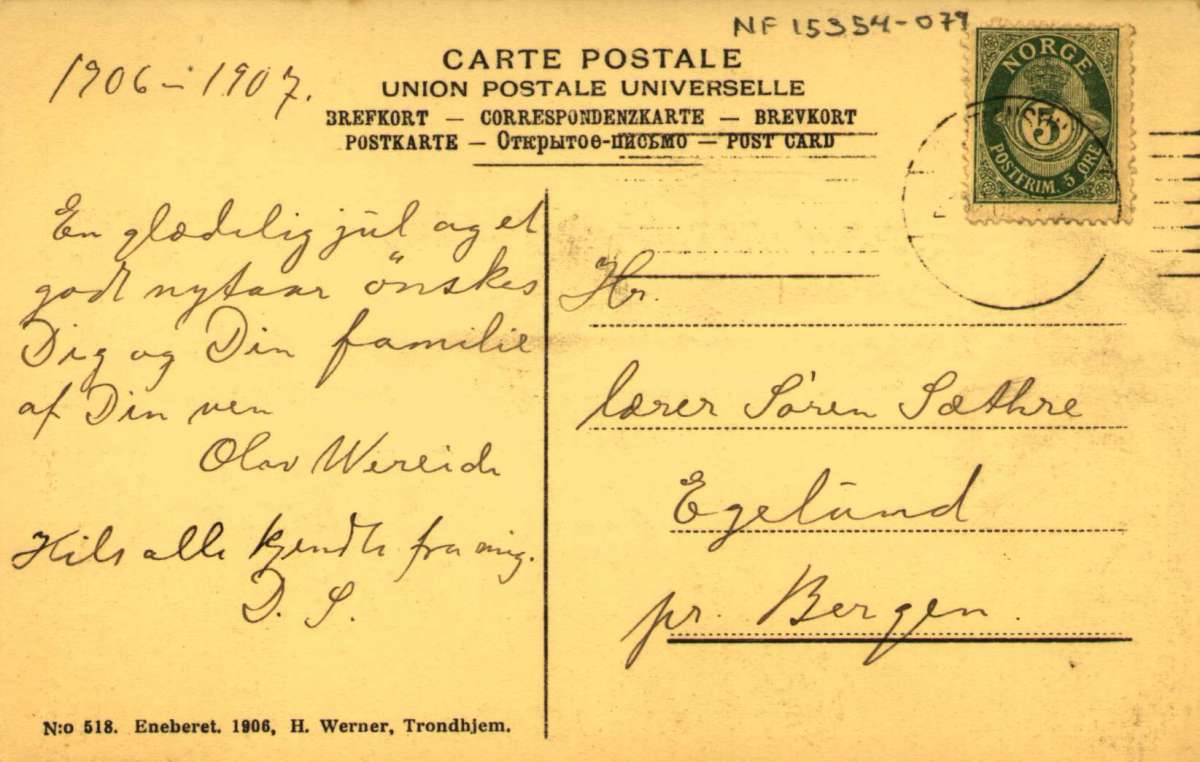 NF 15354-079
1906 - 1907.
CARTE POSTALE
UNION POSTALE UNIVERSELLE
BREFKORT — CORRESPONDENZKARTE — BREVKORT
POSTKARTE — Открытое-письмо — POST CARD
NORGE
5
POSTFRIM. 5 ØRE
En glædelig jul og et
godt nytaar önskes
Dig og Din familie
af Din ven
Olav Wereide
Hils alle kjendte fra mig.
D. S.
Hr.
lærer Søren Sæthre
Egelund
pr. Bergen.
N:o 518. Eneberet. 1906, H. Werner, Trondhjem.